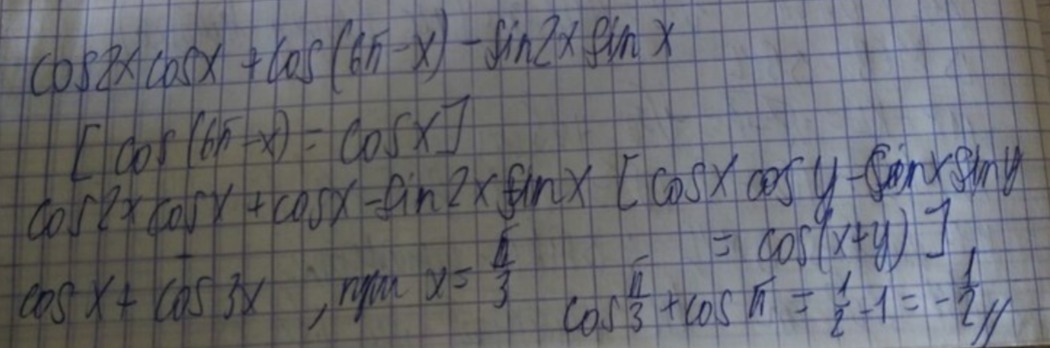 cos2x cosx + cos(6π-x) - sin2x sin x
[cos(6π-x) = cosx]
cos2x cosx + cosx - sin2x sinx [cosx cosy - sinx siny
= cos(x+y)]
cosx + cos3x, при x = π/3 cos π/3 + cos π = 1/2 - 1 = -1/2 //